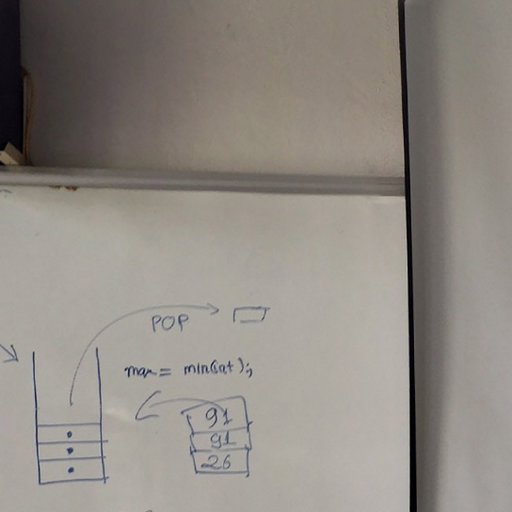 POP
max = min(at);
91
91
26